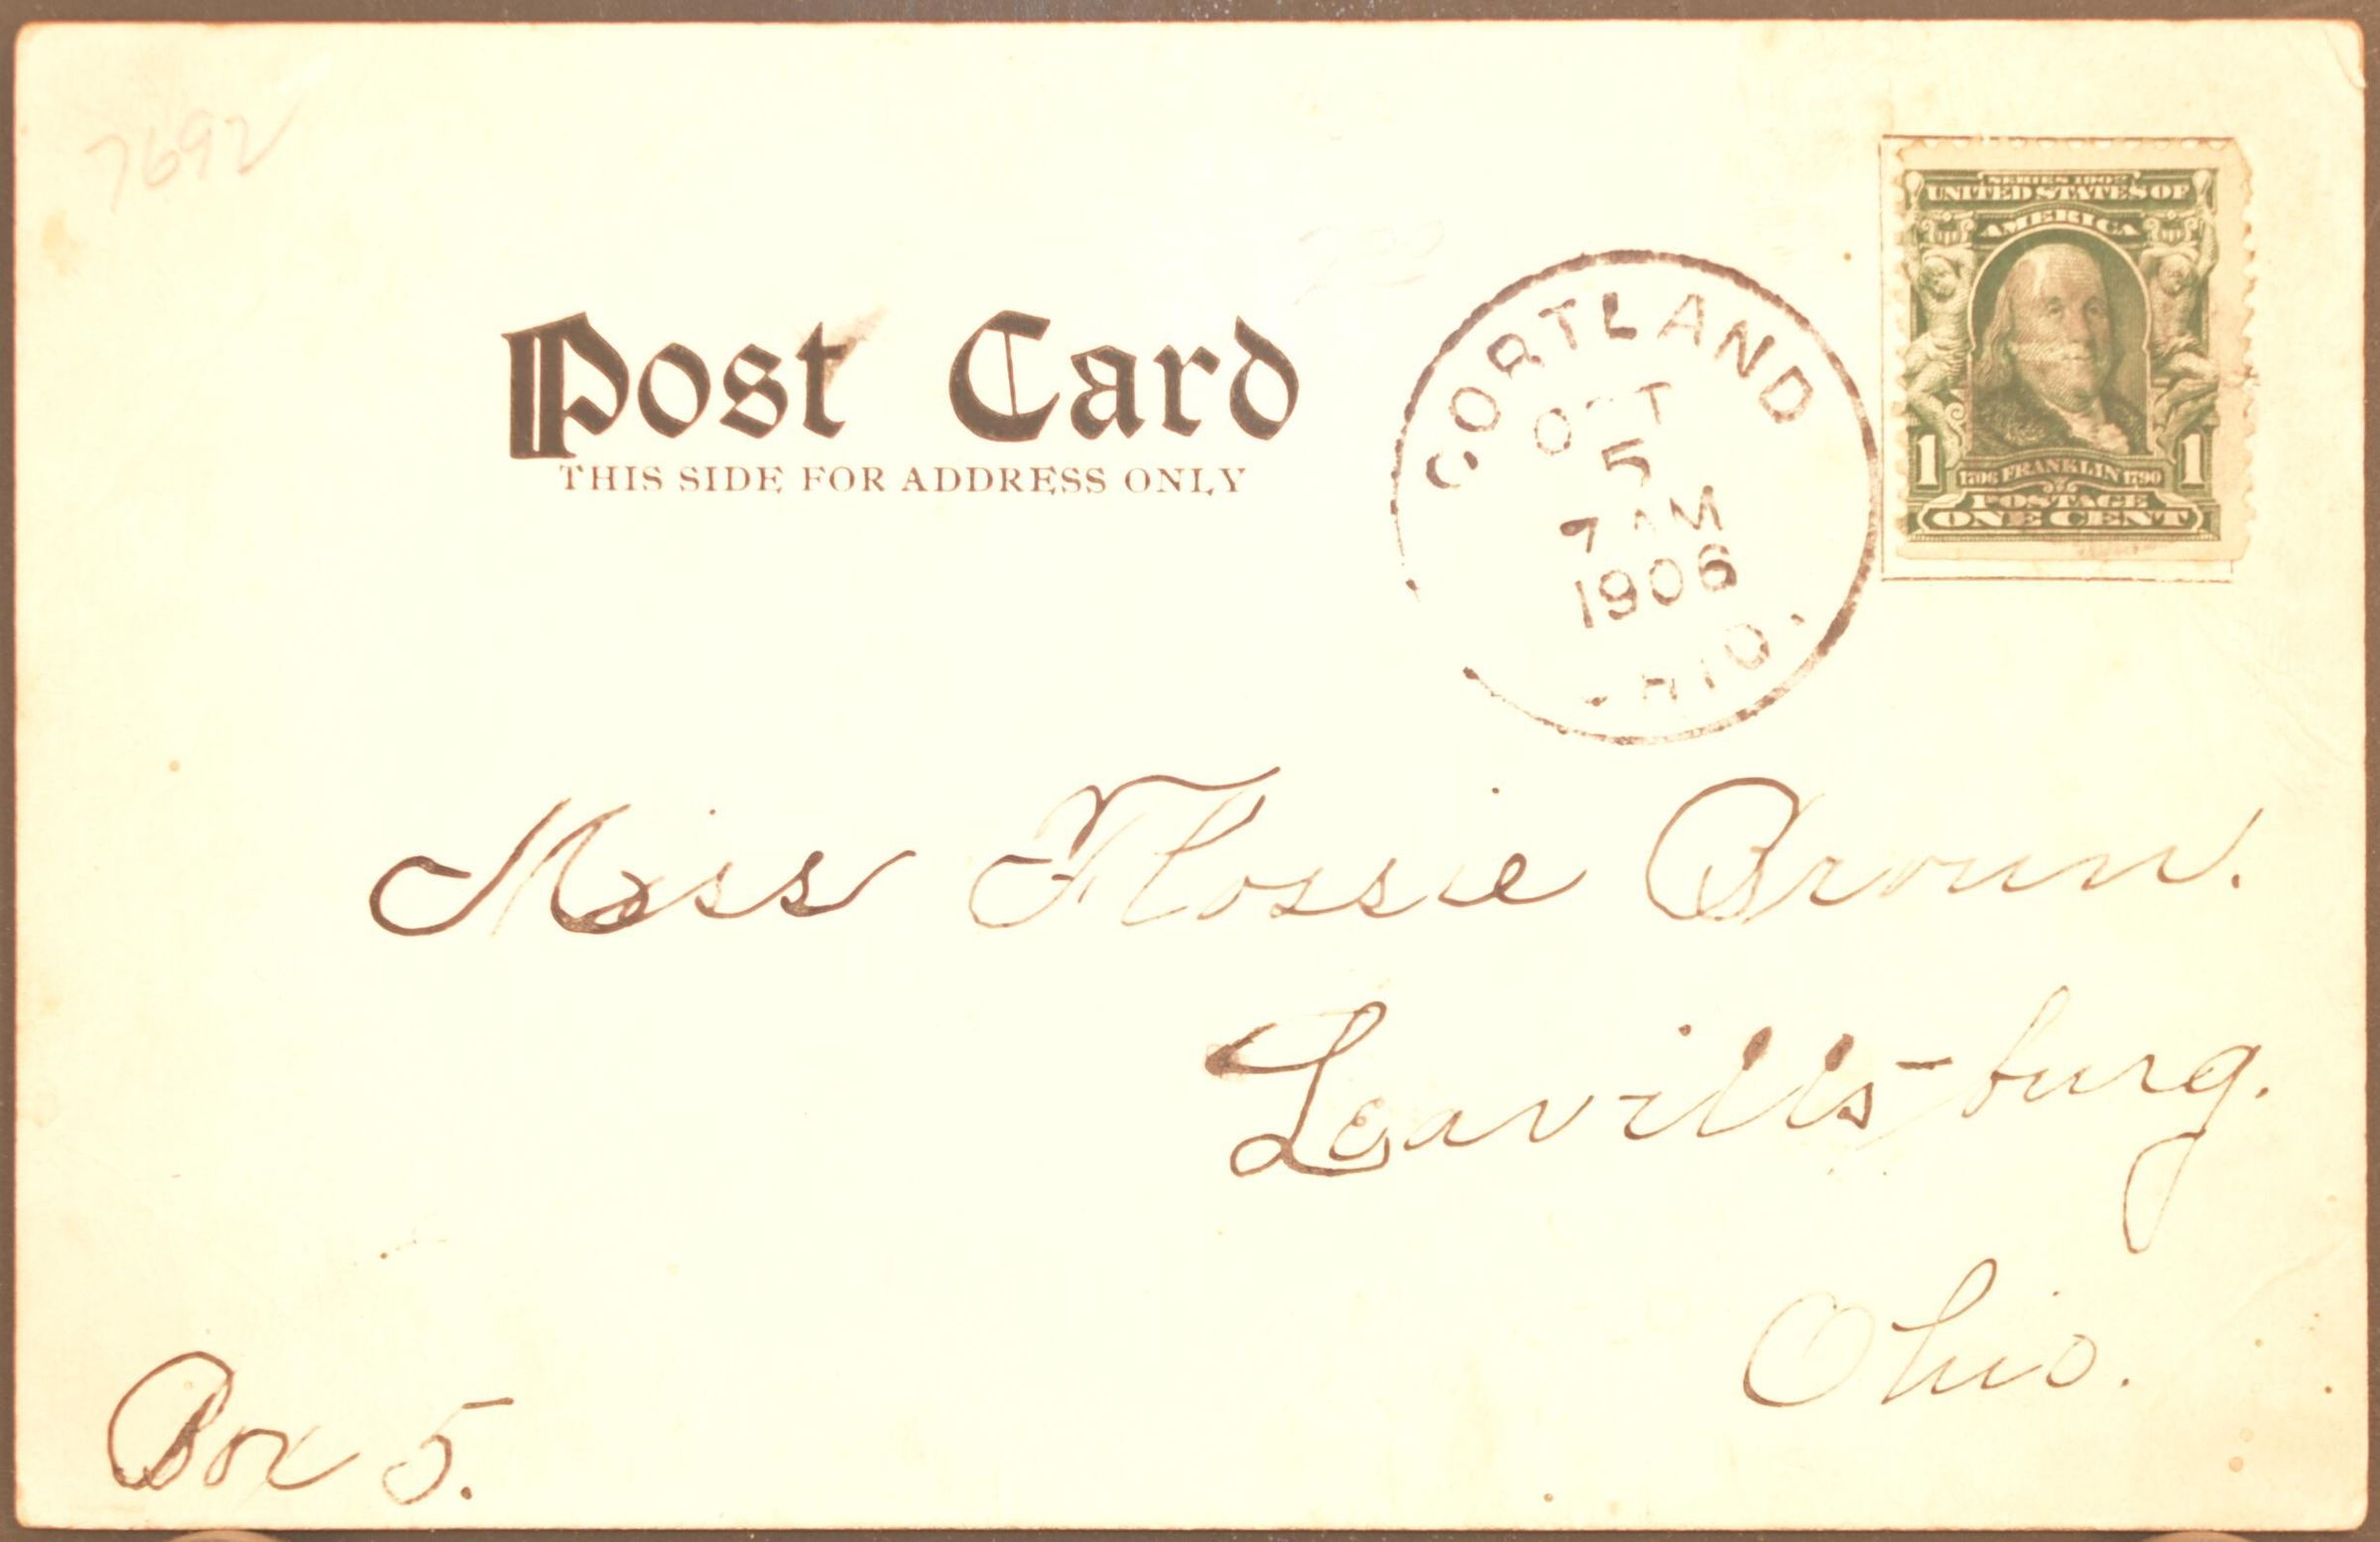 7692
Post Card
THIS SIDE FOR ADDRESS ONLY
CORTLAND
OCT
5
7 AM
1906
OHIO
SERIES 1902
UNITED STATES OF
AMERICA
1 1
1706 FRANKLIN 1790
POSTAGE
ONE CENT
Miss Flossie Brown.
Leavitts-burg.
Ohio.
Box 5.